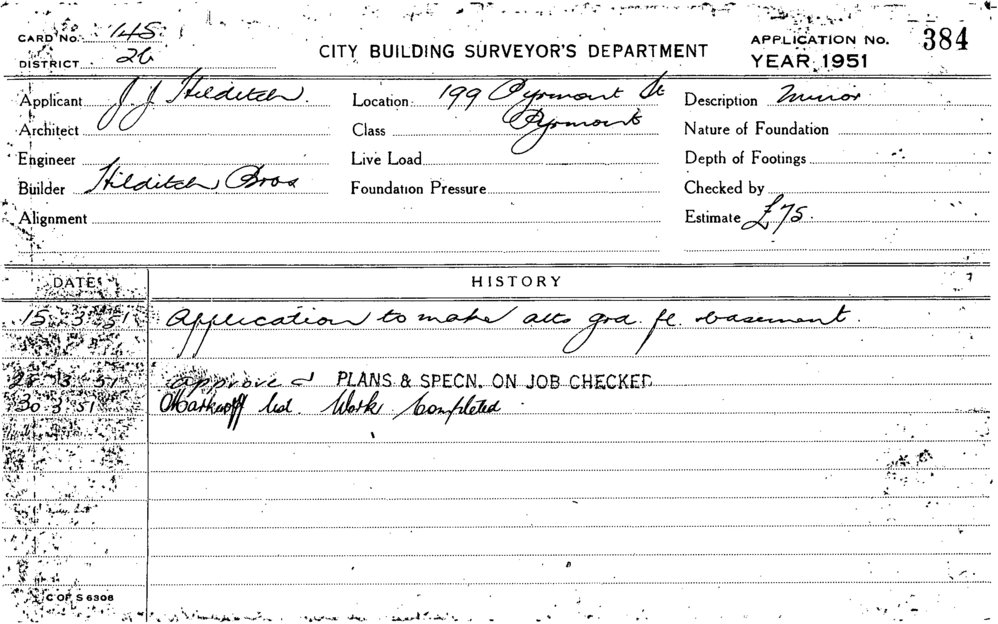 CARD No. 145
DISTRICT 26
CITY BUILDING SURVEYOR'S DEPARTMENT
APPLICATION No. 384
YEAR 1951
Applicant J. J. Hilditch. Location 199 Pyrmont St Description Minor
Architect Class Pyrmont Nature of Foundation
Engineer Live Load Depth of Footings
Builder Hilditch Bros Foundation Pressure Checked by
Alignment Estimate £75.
DATE HISTORY
15.3.51 Application to make alts grd. fl. basement.
28.3.51 approved PLANS & SPECN. ON JOB CHECKED
30.3.51 Work Completed
C OF S 6306